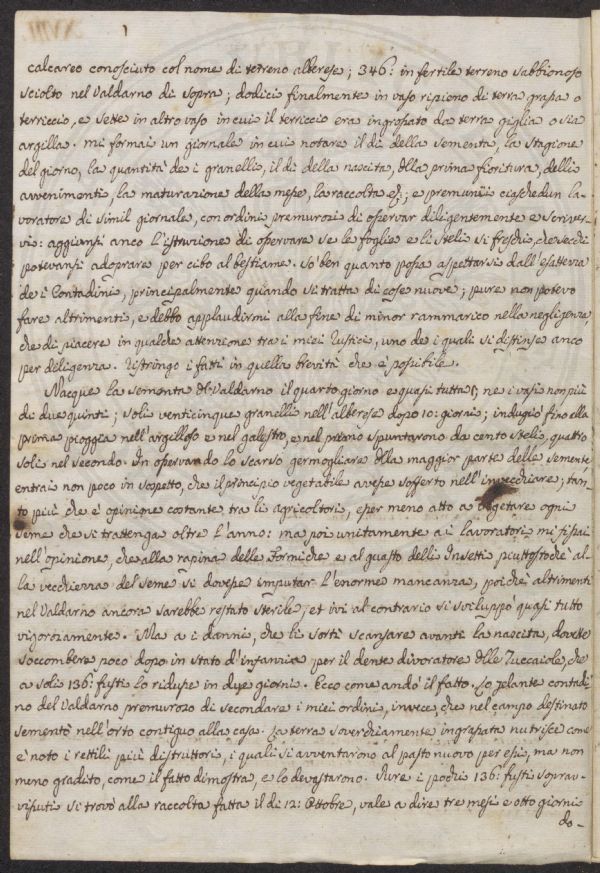 calcareo conosciuto col nome di terreno alberese; 346: in fertile terreno sabbionoso
sciolto nel Valdarno di Sopra; dodici finalmente in vaso ripieno di terra grassa o
terriccio, e sette in altro vaso in cui il terriccio era ingrossato da terra giglia o sia
argilla. Mi formai un giornale in cui notare il dì della sementa, la stagione
del giorno, la quantità de i granelli, il dì della nascita, della prima fioritura, delli
avvenimenti, la maturazione della messe, la raccolta &.; e premunii ciaschedun la-
voratore di simil giornale, con ordini premurosi di osservar diligentemente e scriver-
vi: aggiunsi anco l'istruzione di osservare se le foglie e li steli si freschi, che secchi
potevansi adoprare per cibo al bestiame. So ben quanto possa aspettarsi dall'esattezza
de i Contadini, principalmente quando si tratta di cose nuove; pure non potevo
fare altrimenti, e debbo applaudirmi alla fine di minor rammarico nella negligenza,
che di piacere in qualche attenzione tra i miei rustici, uno de i quali si distinse anco
per diligenza. Ristringo i fatti in quella brevità che è possibile.
Nacque la sementa del Valdarno il quarto giorno e quasi tutta; ne i vasi non più
di due quinti; soli venticinque granelli nell'alberese dopo 10: giorni; indugiò fino alla
prima pioggia nell'argilloso e nel galestro, e nel primo spuntarono da cento steli, quattro
soli nel secondo. In osservando lo scarso germogliare della maggior parte delle semente,
entrai non poco in sospetto, che il principio vegetabile avesse sofferto nell'invecchiare; tan-
to più che è opinione costante tra li agricoltori, esser meno atto a vegetare ogni
seme che si trattenga oltre l'anno: ma poi unitamente a i lavoratori mi fissai
nell'opinione, che alla rapina delle Formiche e al guasto delli Insetti piuttostochè al-
la vecchiezza del seme si dovesse imputar l'enorme mancanza, poichè altrimenti
nel Valdarno ancora sarebbe restato sterile, et ivi al contrario si sviluppò quasi tutto
vigorosamente. Ma a i danni, che li sortì scansare avanti la nascita, dovette
soccombere poco dopo in stato d'infanzia per il dente divoratore delle Zuccaiole, che
a soli 136: fusti lo ridusse in due giorni. Ecco come andò il fatto. Lo zelante contadi-
no del Valdarno premuroso di secondare i miei ordini, invece, che nel campo destinato
sementò nell'orto contiguo alla casa. La terra soverchiamente ingrassata nutrisce come
è noto i rettili più distruttori, i quali si avventarono al pasto nuovo per essi, ma non
meno gradito, come il fatto dimostra, e lo devastarono. Pure i pochi 136: fusti soprav-
vissuti si trovò alla raccolta fatta il dì 12: Ottobre, vale a dire tre mesi e otto giorni
do-